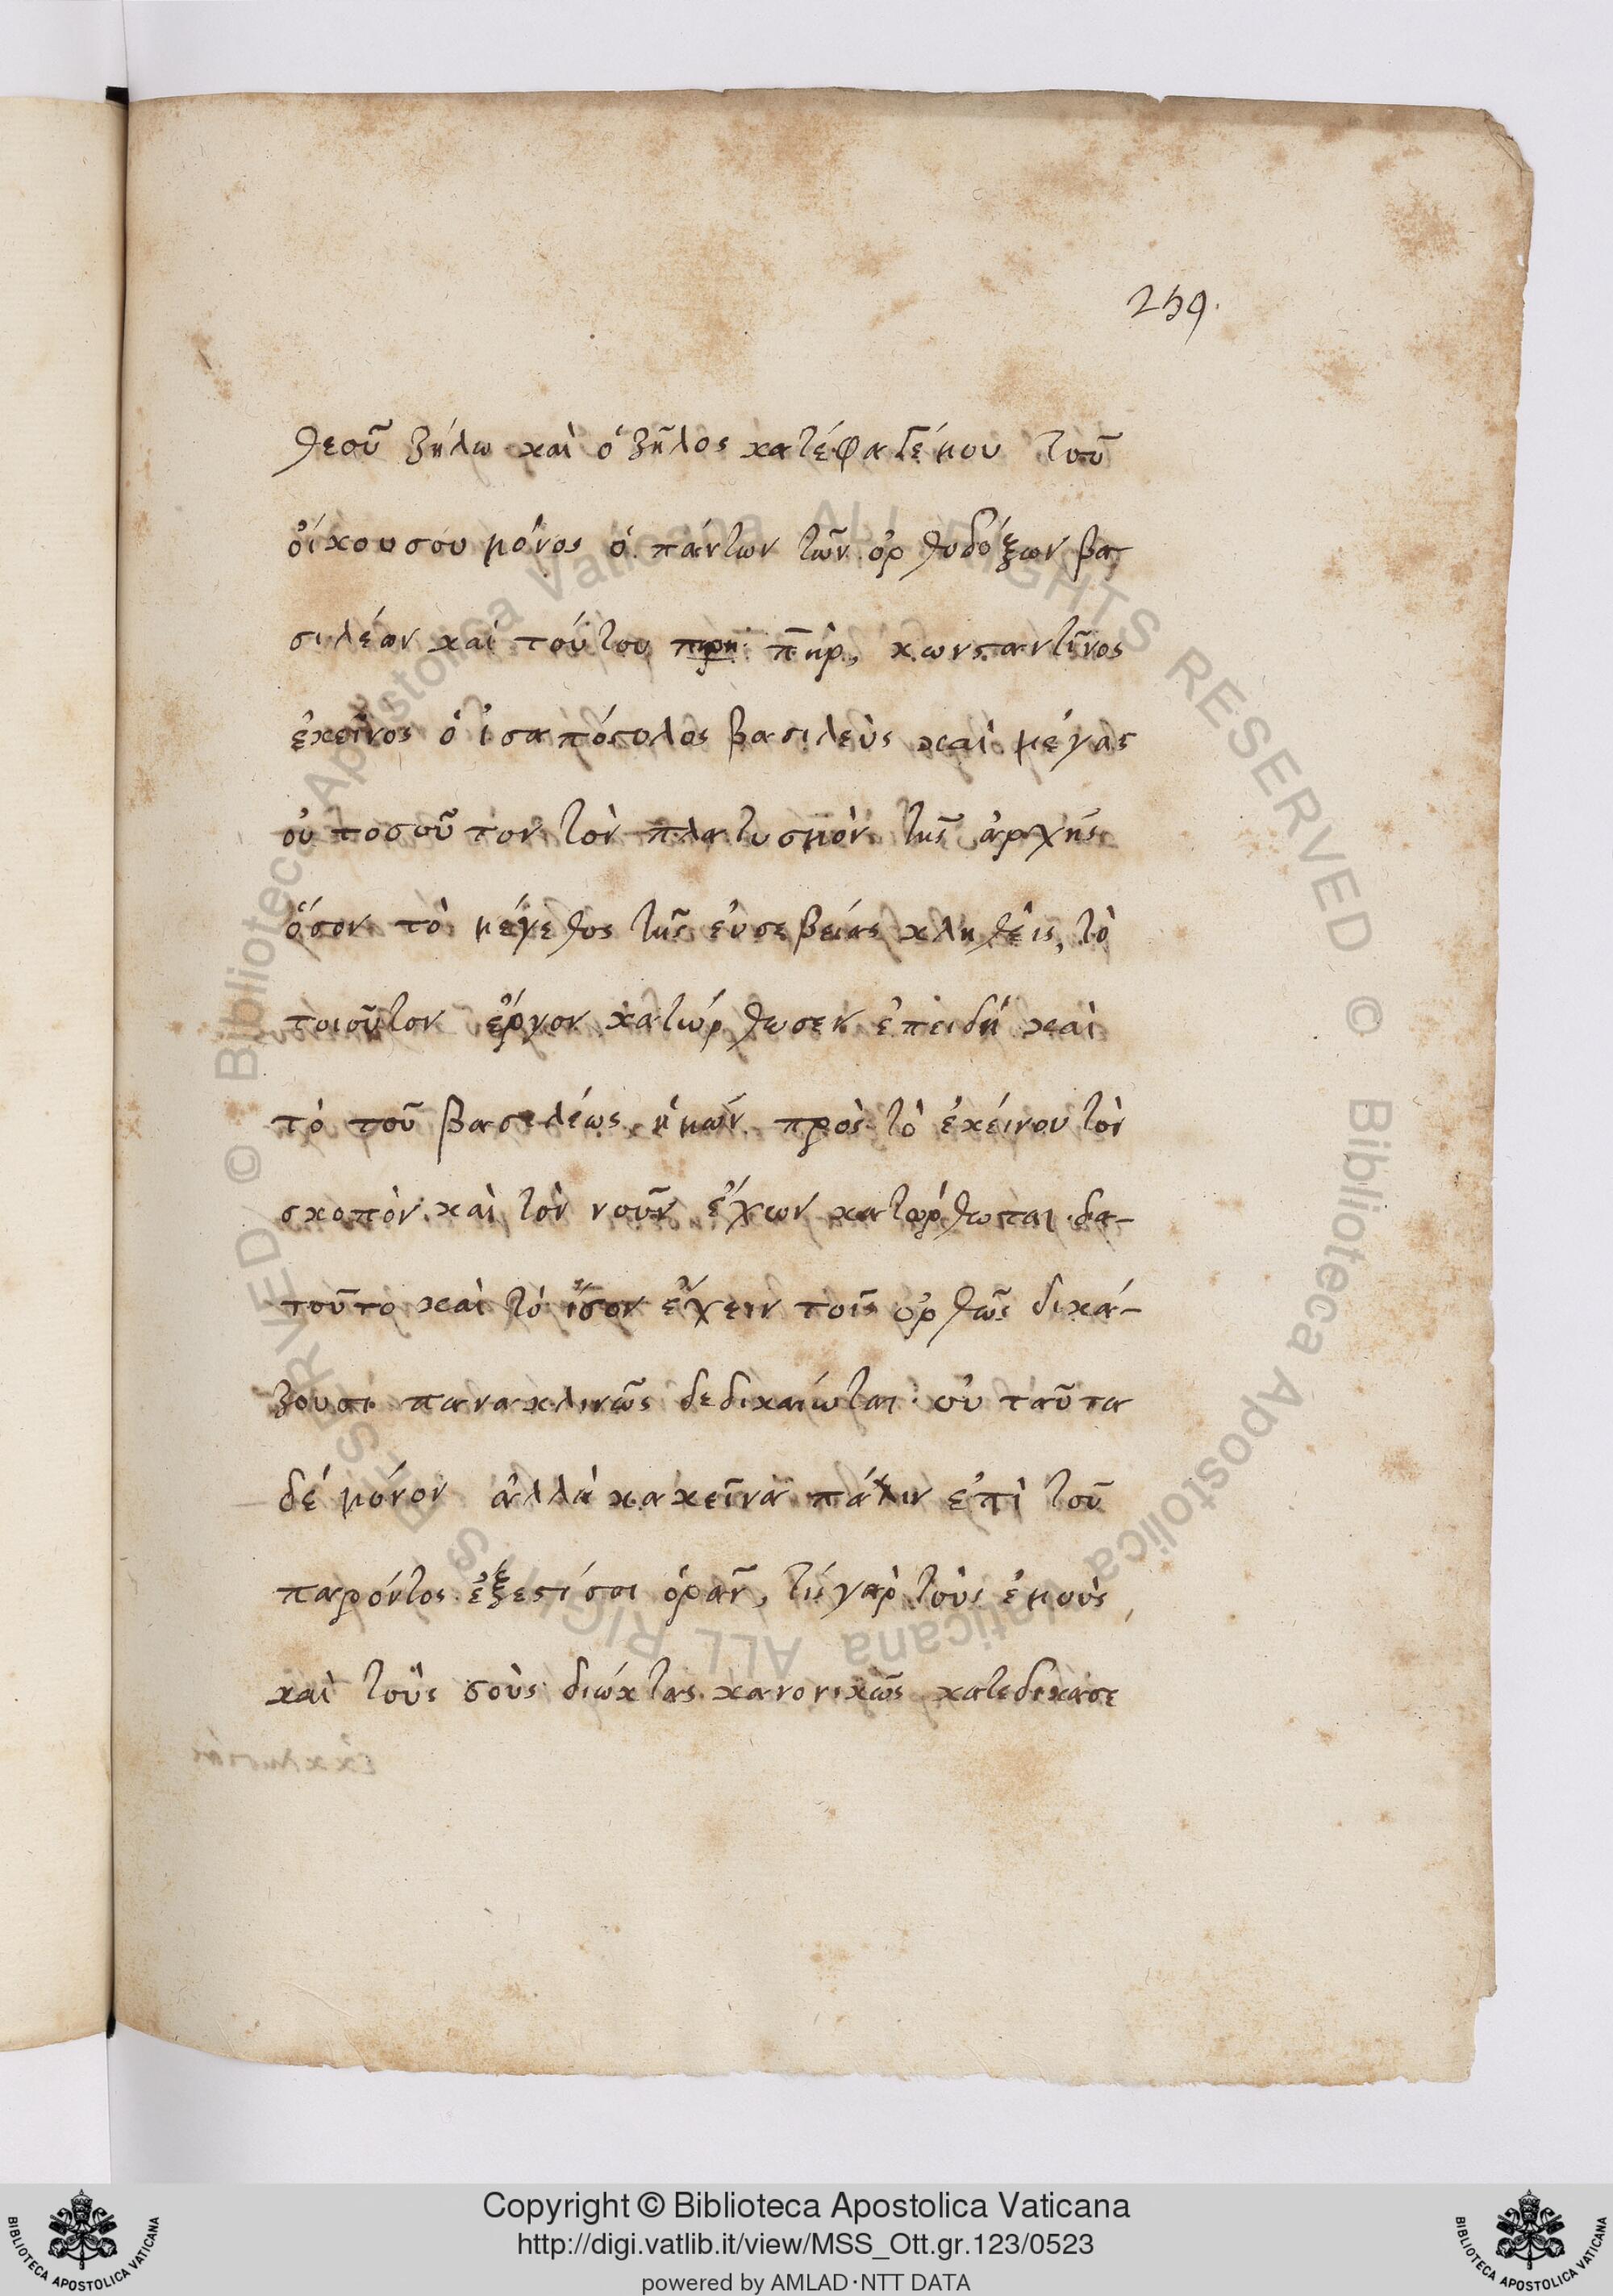 259.
θεοῦ ζήλω καὶ ὁ ζῆλος κατέφαγέ μου τοῦ
οἴκου σου μόνος ὁ πάντων τῶν ὀρθοδόξων βα-
σιλέων καὶ τούτου π̅ηρ, κωνσταντῖνος
ἐκεῖνος ὁ ἰσαπόστολος βασιλεὺς καὶ μέγας
οὐ τοσοῦτον τὸν πλατυσμὸν τῆς ἀρχῆς
ὅσον τὸ μέγεθος τῆς εὐσεβείας κληθεὶς, τὸ
τοιοῦτον ἔργον κατώρθωσεν ἐπειδή καὶ
τὸ τοῦ βασιλέως ἡμῶν πρὸς τὸ ἐκείνου τὸν
σκοπὸν καὶ τὸν νοῦν ἔχων κατώρθωται δα-
τοῦτο καὶ τὸ ἴσον ἔχειν τοῖς ὀρθῶς δικά-
ζουσι πανακλινῶς δεδικαίωται· οὐ ταῦτα
δέ μόνον ἀλλὰ κακεῖνα πάλιν ἐπὶ τοῦ
παρόντος ἐξεστί σοι ὁρᾶν, τίγὰρ τοὺς ἐμοὺς,
καὶ τοὺς σοὺς διώκτας κανονικῶς κατεδίκασε
Copyright © Biblioteca Apostolica Vaticana
http://digi.vatlib.it/view/MSS_Ott.gr.123/0523
powered by AMLAD·NTT DATA
BIBLIOTECA APOSTOLICA VATICANA
BIBLIOTECA APOSTOLICA VATICANA
© Biblioteca Apostolica Vaticana ALL RIGHTS RESERVED
© Biblioteca Apostolica Vaticana ALL RIGHTS RESERVED